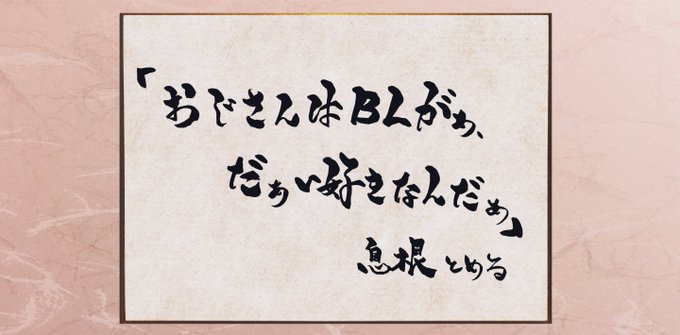 「おじさんはBLがぁ、
だぁい好きなんだぁ」
息根とめる